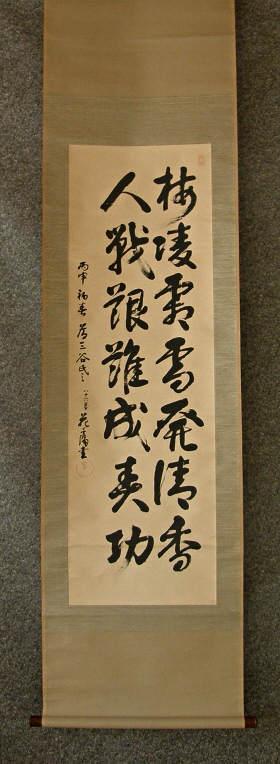 梅凌霜雪発清香
人戦艱難成美功
丙申 初春 為三谷氏
書